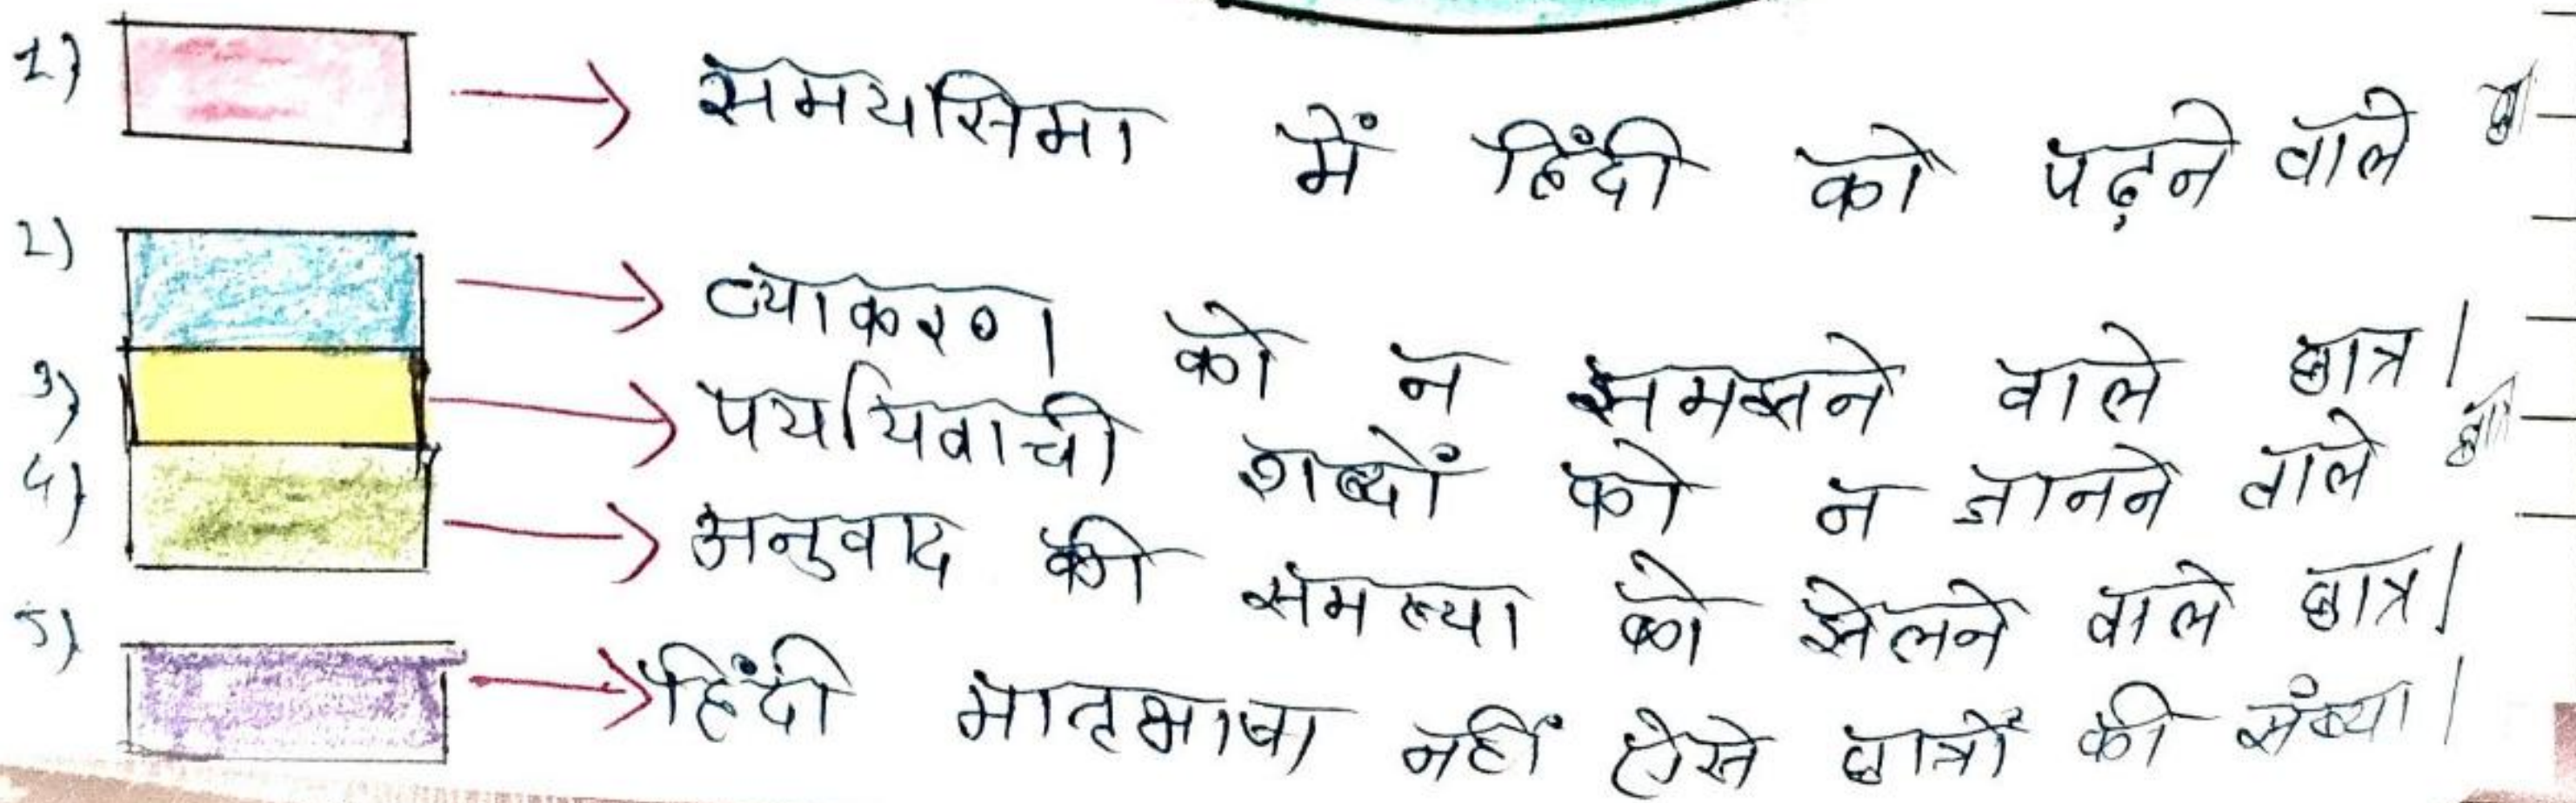 1) → समयसिमा में हिंदी को पढ़ने वाले
2) → व्याकरण को न समझने वाले छात्र।
3) → पर्यायवाची शब्दों को न जानने वाले
4) → अनुवाद की समस्या को झेलने वाले छात्र।
5) → हिंदी मातृभाषा नहीं ऐसे छात्रों की संख्या।